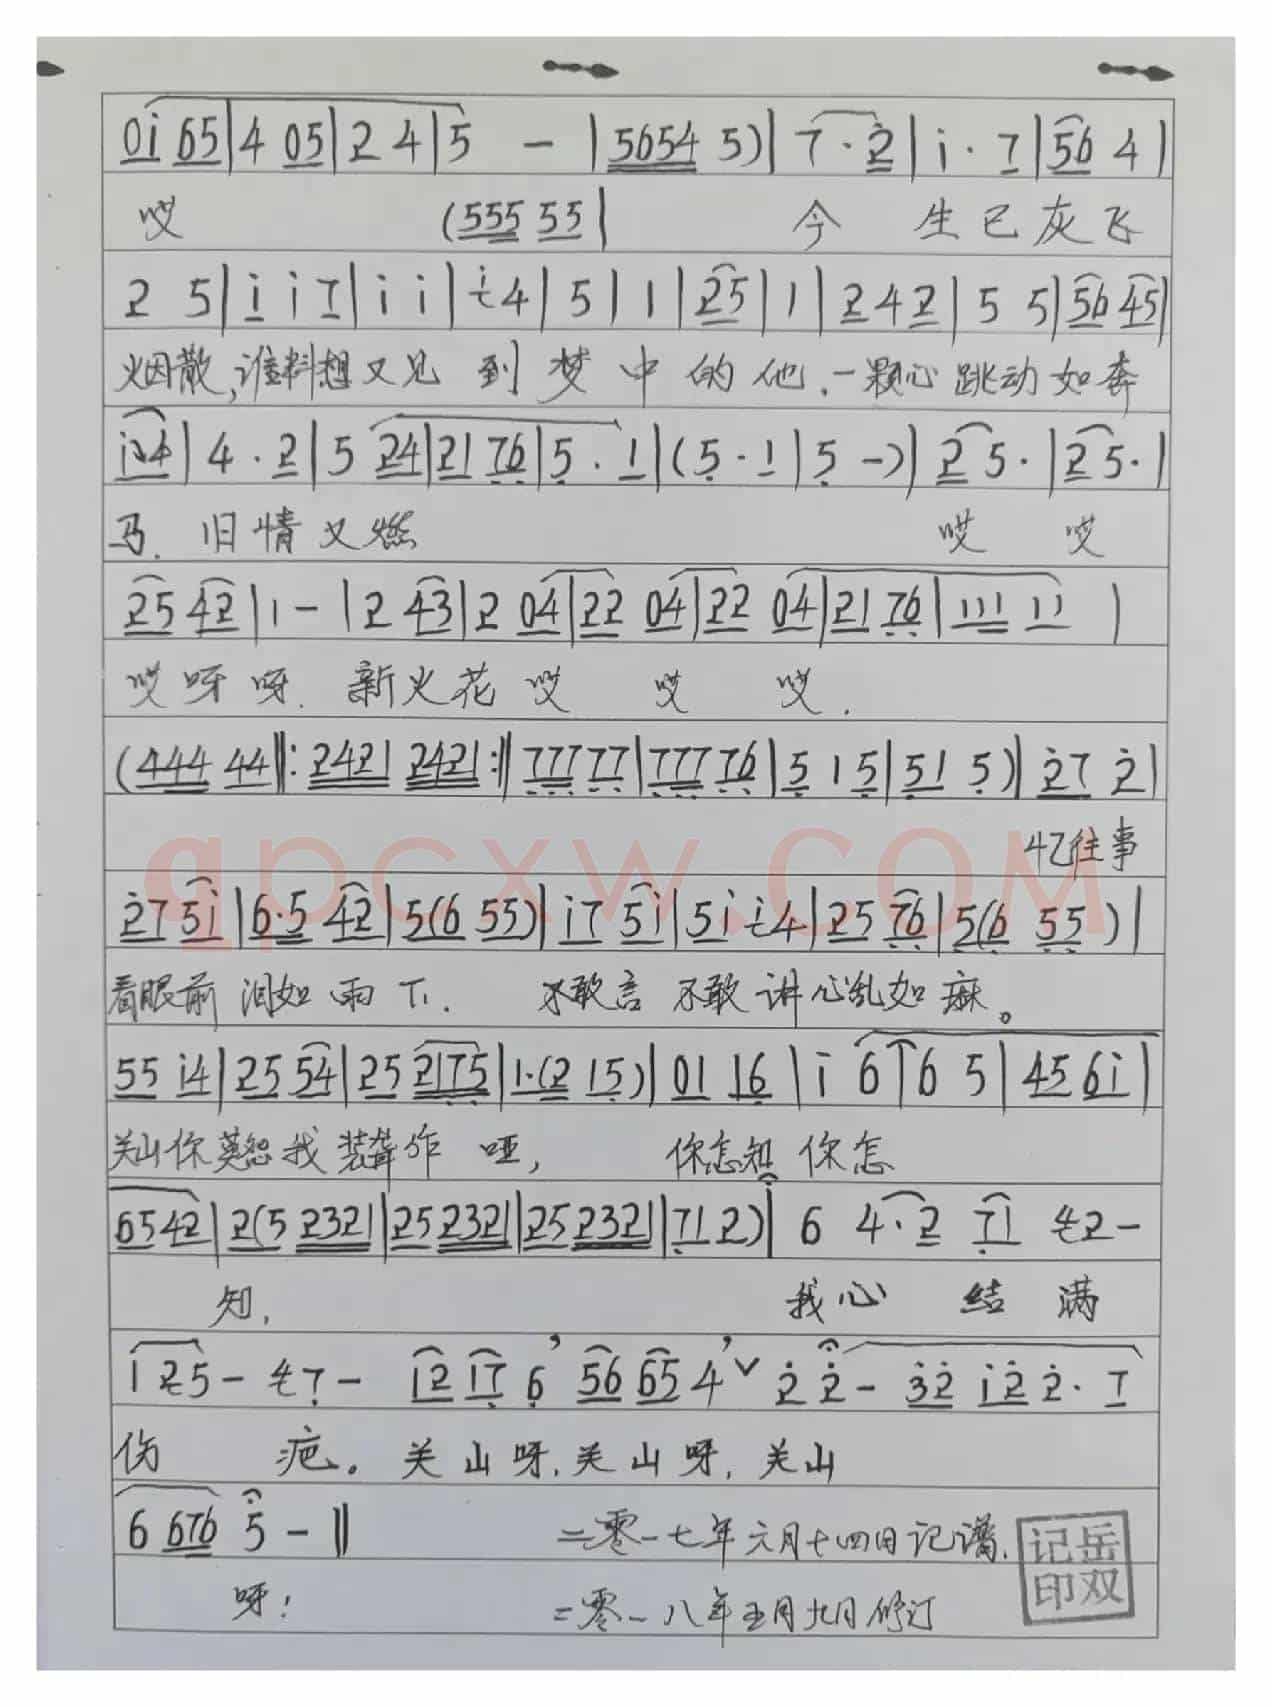 0i 65|4 05|2 4|5 - |5654 5)|7·2|i·7|56 4|
哎 (555 55| 今 生已灰飞
2 5|i i 7|i i|i 4|5|1|25|1|2 4 2|5 5|56 45|
烟散,谁料想又见 到 梦 中 的 他.一颗心跳动如奔
i 4|4·2|5 24|21 76|5·1|(5·1|5 -)|2 5·|2 5·|
马. 旧情又燃 哎 哎
25 42|1 -|2 43|2 04|22 04|22 04|21 76|111 11 |
哎呀呀. 新火花 哎 哎 哎.
(444 44‖:2421 2421:‖777 77|777 76|5 1 5|51 5)|27 2|
忆往事
qpcxw.COM
27 5i|6·5 42|5(6 55)|i7 5i|5i i4|25 76|5(6 55)|
看眼前 泪如 雨 下. 不敢言 不敢 讲 心乱如麻。
55 i4|25 54|25 2175|1·(2 15)|01 16|i 6|6 5|45 6i|
关山你莫怨我 装聋作 哑, 你怎知 你怎
6542|2(5 2321|25 2321|25 2321|71 2)|6 4·2 71 2-
知, 我心 结 满
1 2 5 - 7 - 12 17 6 ’ 56 65 4 ’ ∨ 2 2 - 32 i2 2·7
伤 疤。关山呀,关山呀,关山
6 676 5 - ‖ 二零一七年六月十四日记谱.
呀! 二零一八年五月九日修订
记岳
印双